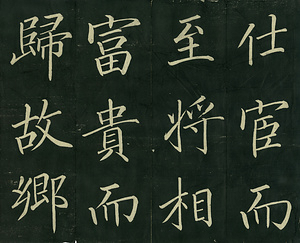 仕宦而
至将相
富貴而
歸故鄉